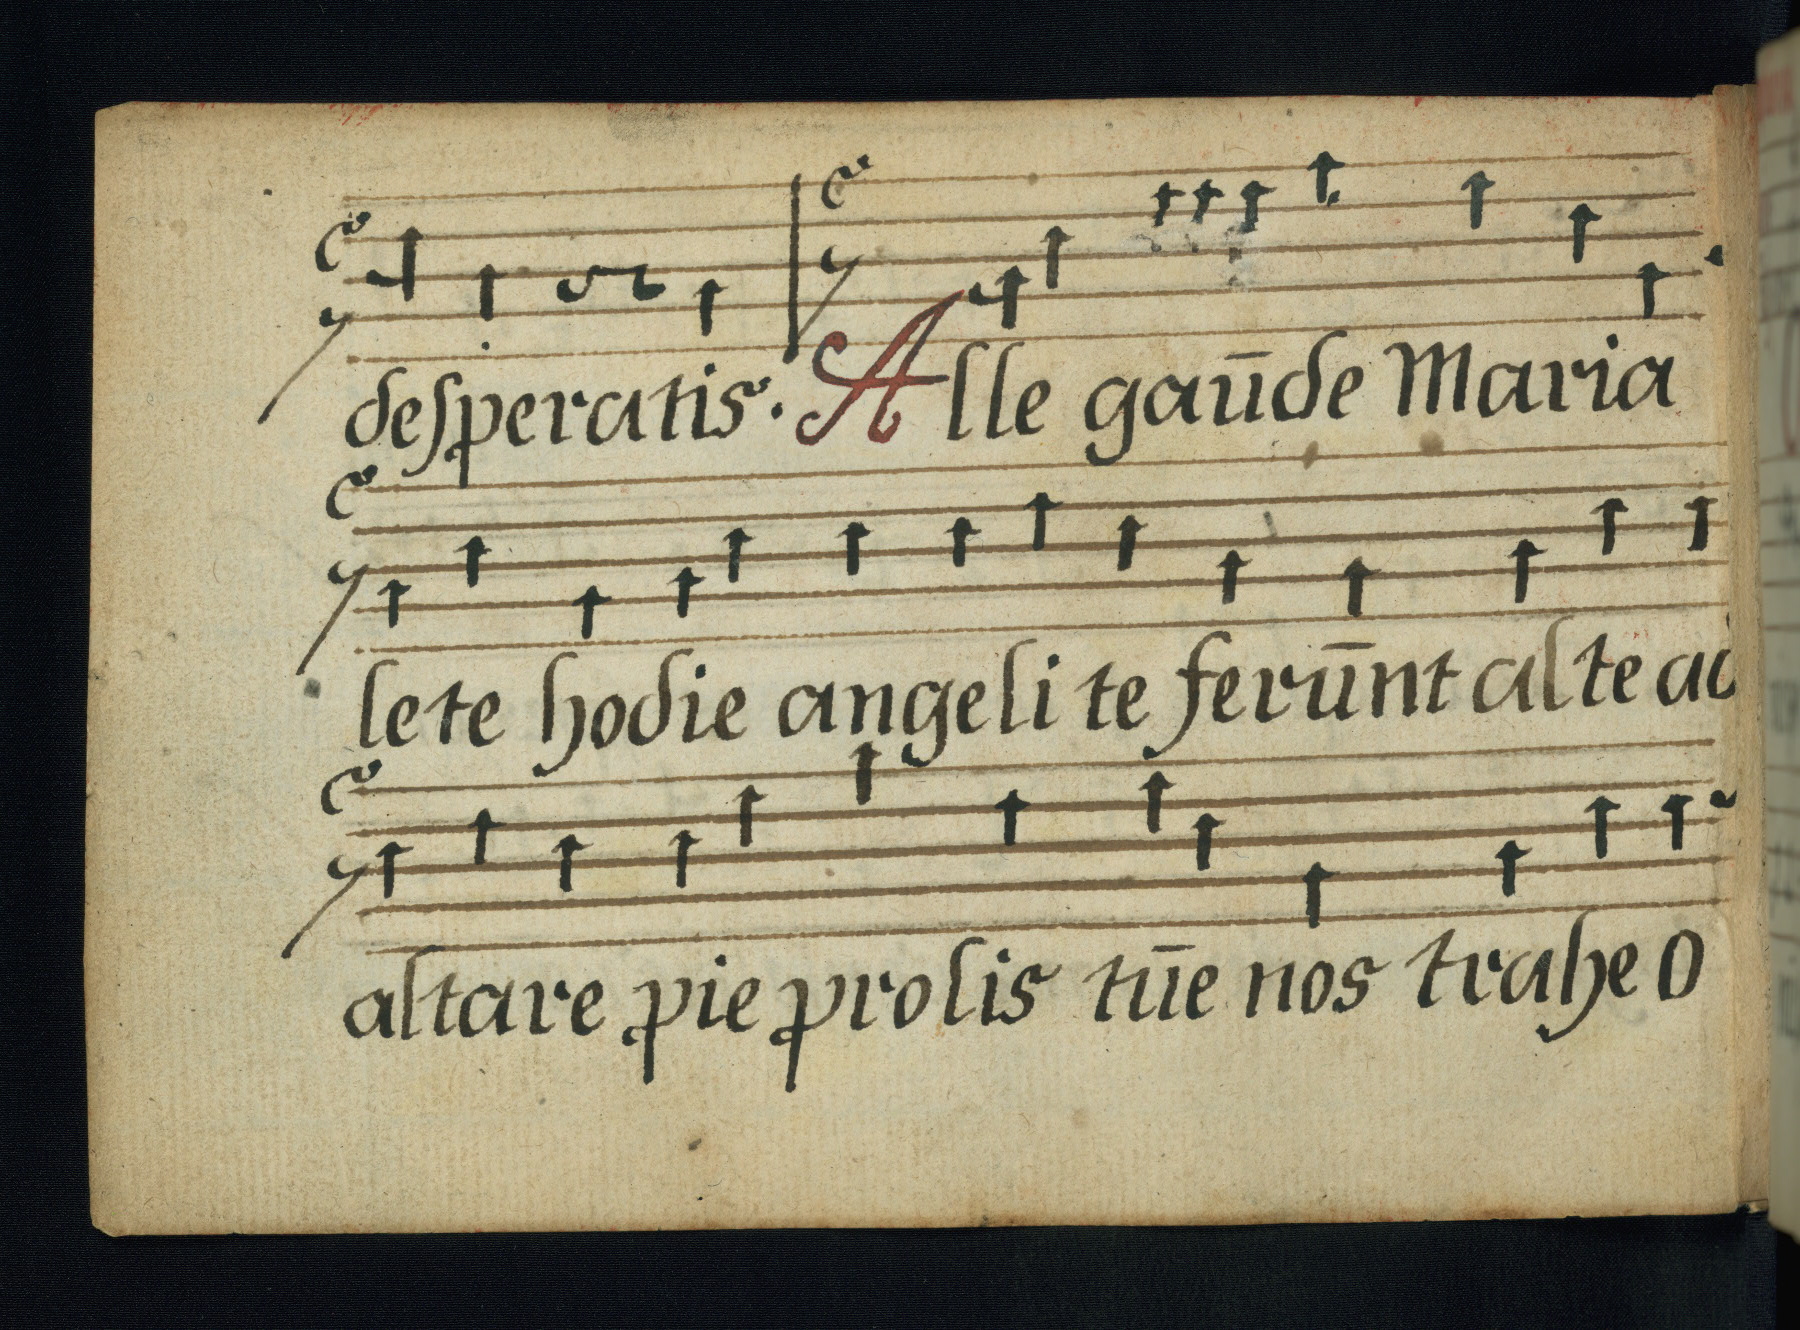 deſperatis. Alle gaūde Maria
lete hodie angeli te ferūnt alte ad
altare pie prolis tūe nos trahe O